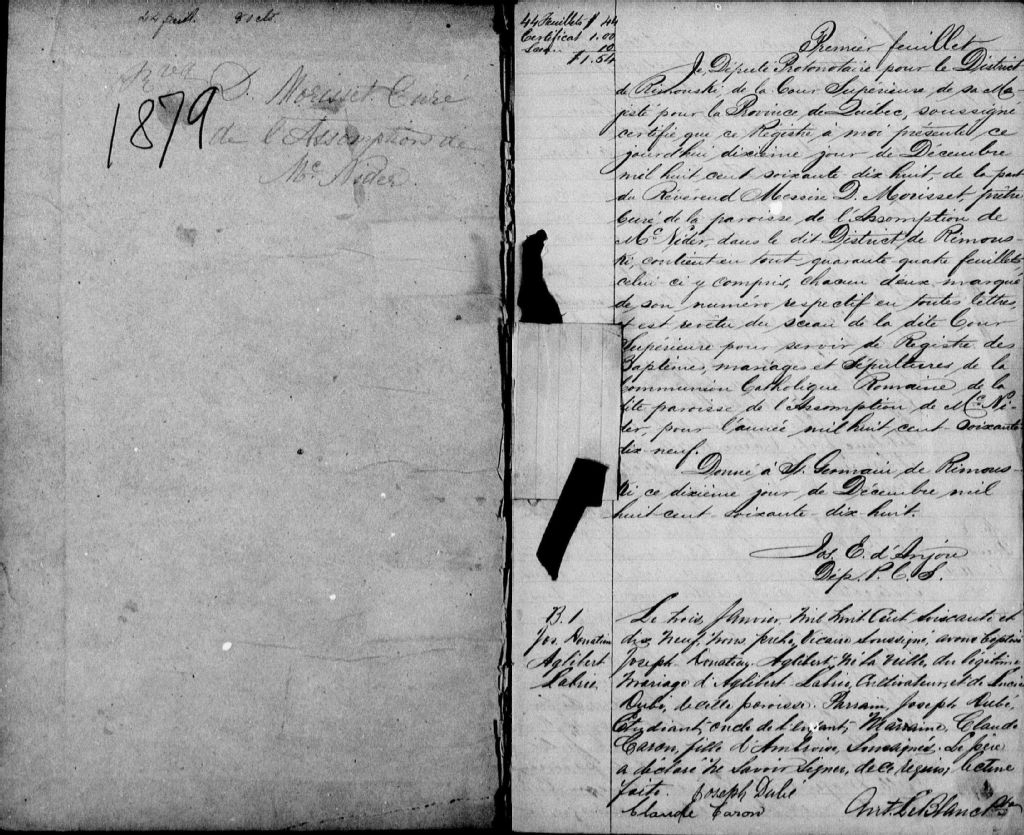 44 feuil. 80 cts
Révd
1879
D. Morisset Curé
de l'Assomption de
McNider
44 Feuillets $ 44
Certificat 1.00
10
$1.54
Premier feuillet
Je, Député Protonotaire pour le District
de Rimouski, de la Cour Supérieure, de sa Ma-
jesté pour la Province de Québec, soussigné
certifie que ce Registre à moi présenté, ce
jourd'hui dixième jour de Décembre
mil huit cent soixante dix huit, de la part
du Révérend Messire D. Morisset, prêtre
Curé de la paroisse de l'Assomption de
McNider, dans le dit District de Rimous-
ki, contient en tout, quarante quatre feuillets,
celui ci y compris, chacun d'eux marqué
de son numéro respectif en toutes lettres,
et est revêtu du sceau de la dite Cour
Supérieure pour servir de Registre des
Baptêmes, mariages et Sépultures, de la
Communion Catholique Romaine de la
dite paroisse de l'Assomption de McNi-
der, pour l'année mil huit cent soixante
dix neuf.
Donné à St. Germain de Rimous-
ki ce dixième jour de Décembre mil
huit cent soixante dix huit.
Jos. E. d'Anjou
Dép. P. C. S.
B. 1
Jos. Donatien
Aglibert
Labrie
Le trois Janvier, mil huit cent soixante et
dix neuf, nous prêtre Vicaire soussigné, avons baptisé
Joseph Donatien Aglibert, né la veille, du légitime
mariage d'Aglibert Labrie, Cultivateur, et de Lucie
Dubé, de cette paroisse. Parrain, Joseph Dubé,
Etudiant, oncle de l'enfant, Marraine, Claude
Caron, fille d'Ambroise, Soussignés. Le père
a déclaré ne savoir signer, de ce requis, lecture
faite. Joseph Dubé
Claude Caron Ant. LeBlanc Ptre